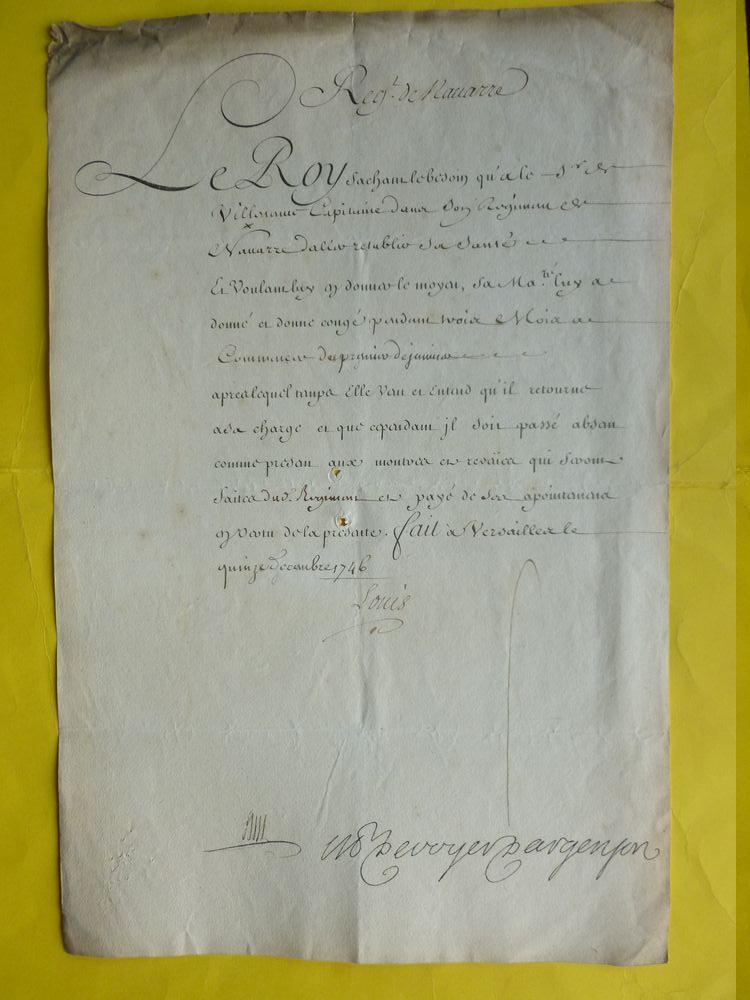 Reg.t de Nauarre
Le Roy sachant le besoin qu'a le S.r de
Capitaine dans son Regiment de
Nauarre d'aller retablir sa santé
Et Voulant luy en donner le moyen, sa Ma.té luy a
donné et donne congé pendant trois Mois a
Commencer du premier de januier
apres lequel temps Elle Veut et Entend qu'il retourne
a sa charge et que cependant jl soit passé absent
comme present aux montres et reveües qui seront
faites dud. Regiment et payé de ses apointemens
en Vertu de la presente. fait a Versailles le
quinze Decembre 1746
Louis
M P De voyer D'argenson